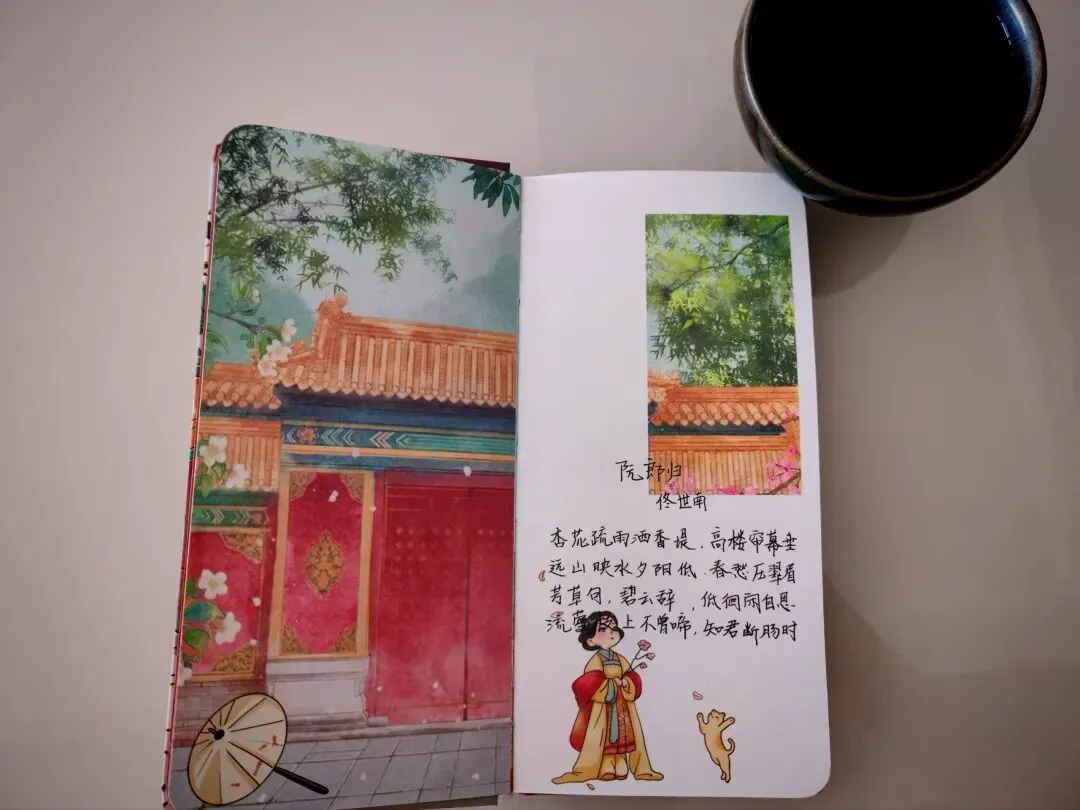 阮郎归
佟世南
杏花疏雨洒香堤，高楼帘幕垂
远山映水夕阳低，春愁压翠眉
芳草句，碧云辞，低徊闲自思
流莺枝上不曾啼，知君断肠时